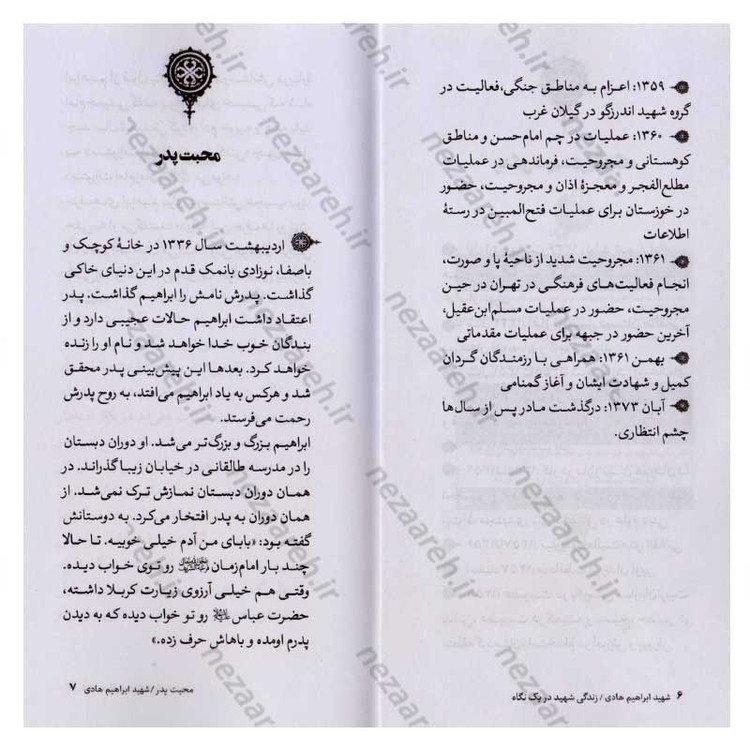 ۱۳۵۹: اعزام به مناطق جنگی،فعالیت در
گروه شهید اندرزگو در گیلان غرب
۱۳۶۰: عملیات در چم امام‌حسن و مناطق
کوهستانی و مجروحیت، فرماندهی در عملیات
مطلع‌الفجر و معجزهٔ اذان و مجروحیت، حضور
در خوزستان برای عملیات فتح‌المبین در رستهٔ
اطلاعات
۱۳۶۱: مجروحیت شدید از ناحیهٔ پا و صورت،
انجام فعالیت‌های فرهنگی در تهران در حین
مجروحیت، حضور در عملیات مسلم‌ابن‌عقیل،
آخرین حضور در جبهه برای عملیات مقدماتی
بهمن ۱۳۶۱: همراهی با رزمندگان گردان
کمیل و شهادت ایشان و آغاز گمنامی
آبان ۱۳۷۳: درگذشت مادر پس از سال‌ها
چشم انتظاری.
۶ شهید ابراهیم هادی / زندگی شهید در یک نگاه
محبت پدر
اردیبهشت سال ۱۳۳۶ در خانهٔ کوچک و
باصفا، نوزادی بانمک قدم در این دنیای خاکی
گذاشت. پدرش نامش را ابراهیم گذاشت. پدر
اعتقاد داشت ابراهیم حالات عجیبی دارد و از
بندگان خوب خدا خواهد شد و نام او را زنده
خواهد کرد. بعدها این پیش‌بینی پدر محقق
شد و هرکس به یاد ابراهیم می‌افتد، به روح پدرش
رحمت می‌فرستد.
ابراهیم بزرگ و بزرگ‌تر می‌شد. او دوران دبستان
را در مدرسه طالقانی در خیابان زیبا گذراند. در
همان دوران دبستان نمازش ترک نمی‌شد. از
همان دوران به پدر افتخار می‌کرد. به دوستانش
گفته بود: «بابای من آدم خیلی خوبیه. تا حالا
چند بار امام‌زمان رو توی خواب دیده.
وقتی هم خیلی آرزوی زیارت کربلا داشته،
حضرت عباس رو تو خواب دیده که به دیدن
پدرم اومده و باهاش حرف زده.»
محبت پدر / شهید ابراهیم هادی ۷
nezaareh.ir